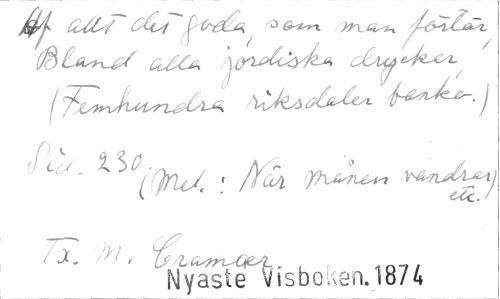 Af allt det goda, som man förtär,
Bland alla jordiska drycker,
(Femhundra riksdaler banko.)
Sid. 230.
(Mel.: När månen vandrar)
etc.
Tx. M. Cramær
Nyaste Visboken. 1874